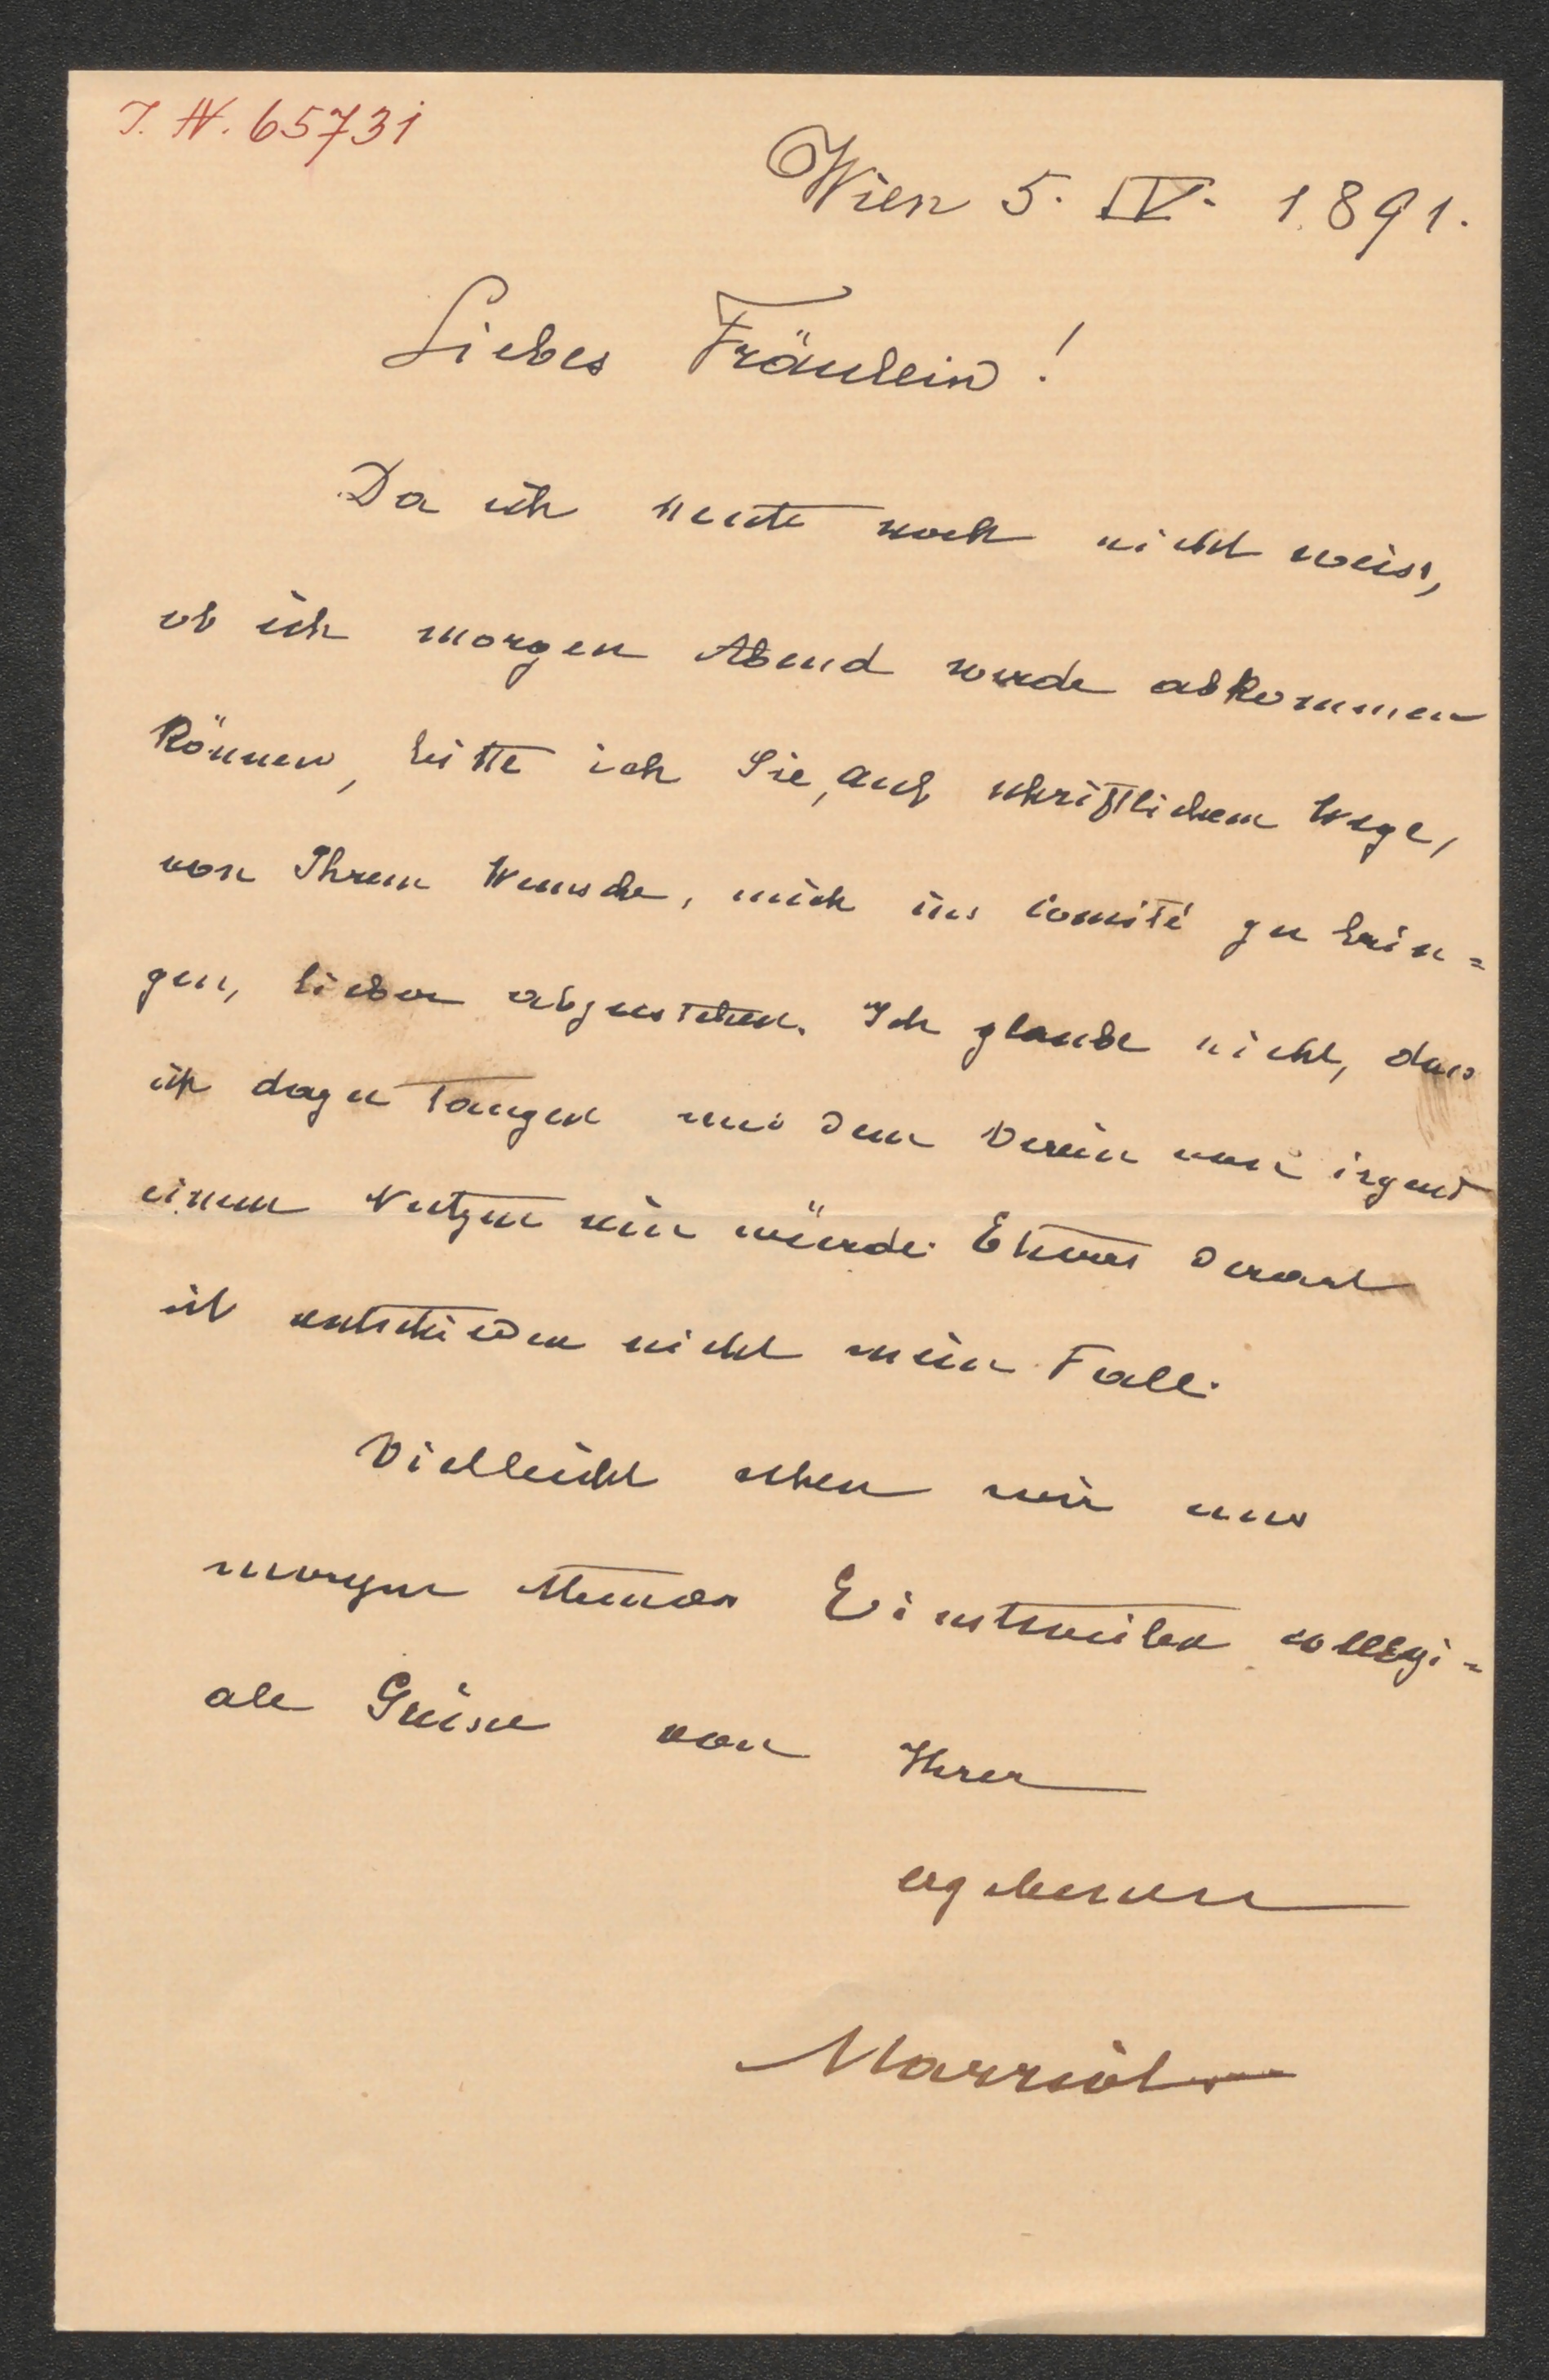 I. N. 65731
Wien 5. IV. 1891.
Liebes Fräulein!
Da ich heute noch nicht weiss,
ob ich morgen Abend werde abkommen
können, bitte ich Sie, auf schriftlichem Wege,
von Ihrem Wunsche, mich ins Comité zu brin=
gen, lieber abzustehen. Ich glaube nicht, dass
ich dazu taugen und dem Verein von irgend
einem Nutzen sein würde. Etwas derart
ist entschieden nicht mein Fall.
Vielleicht sehen wir uns
morgen Abend. Einstweilen collegi=
ale Grüsse von Ihrer
ergebenen
Marriot